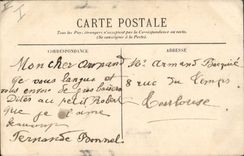 CARTE POSTALE
Tous les pays étrangers n'acceptent pas la Correspondance au recto.
(Se renseigner à la Poste)
CORRESPONDANCE
ADRESSE
Mon cher Armand
je vous
et
vous envoie de gros baisers
Dites au petit Robert
que je l'aime
beaucoup
Fernande Bonnel
Mr Armand
8 rue du Temps
Toulouse